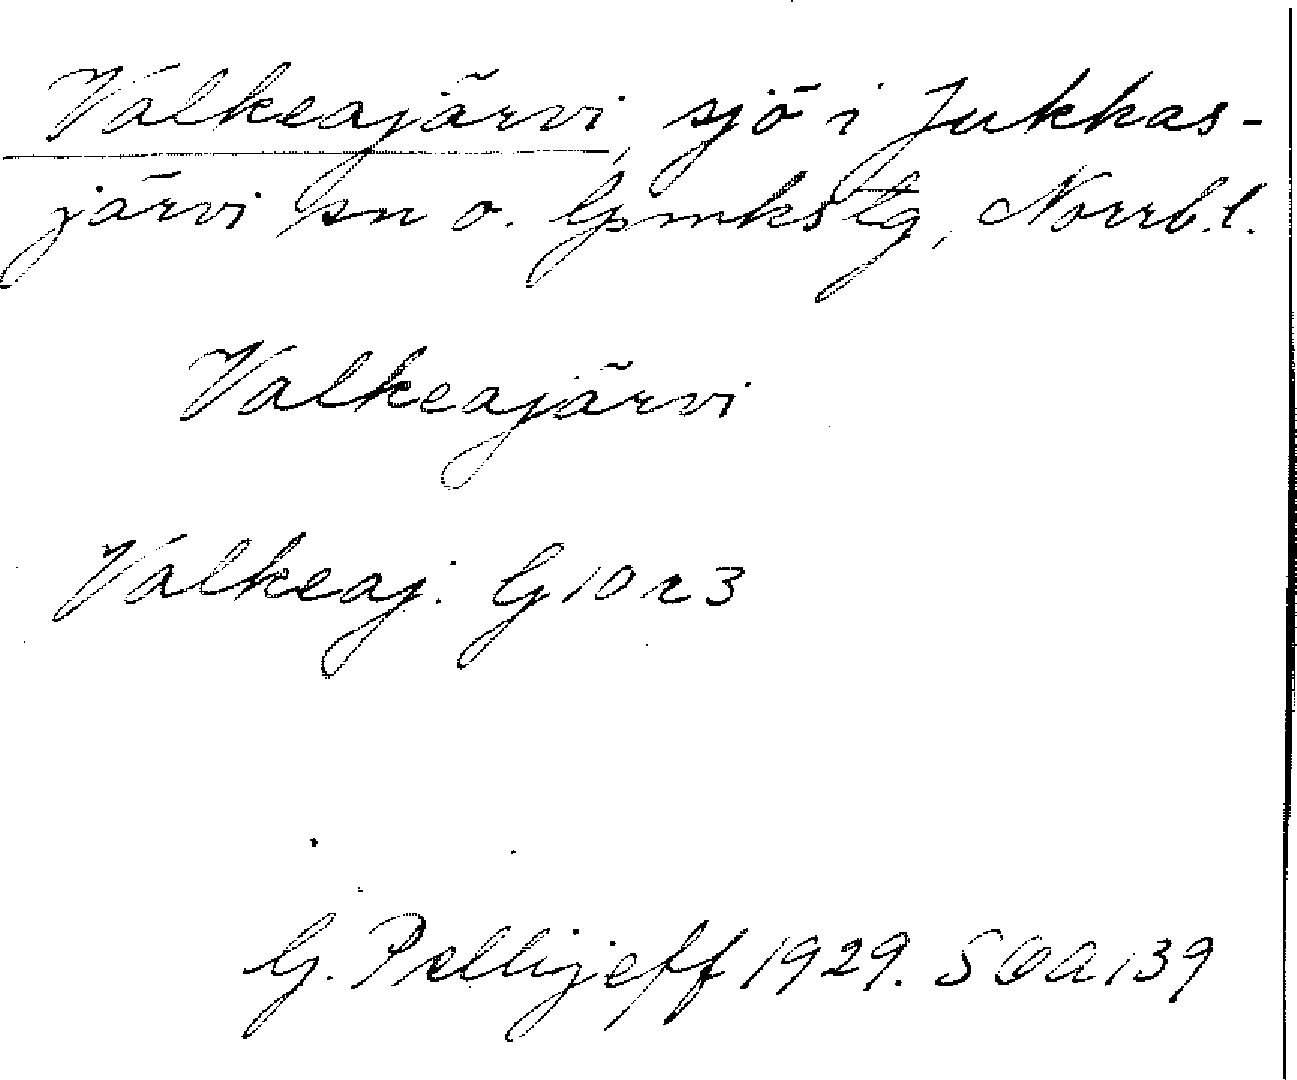 Valkeajärvi, sjö i Jukkas-
järvi sn o. lpmkstg, Norrb. l.
Valkeajärvi
Valkeaj. G 10 r 3
G. Pellijeff 1929. SOA 139